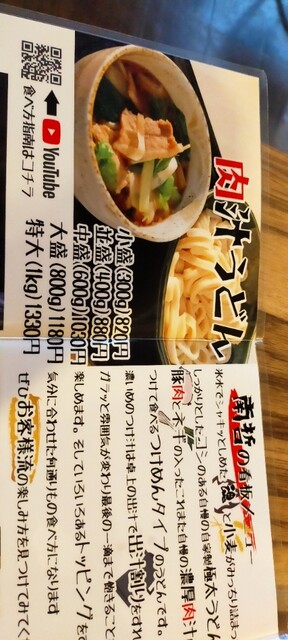 肉汁うどん
小盛(300g)820円
並盛(400g)880円
中盛(600g)1030円
大盛(800g)1180円
特大(1kg)1330円
YouTube
食べ方指南はコチラ
南哲の看板メニュー
氷水でシャキッとしめた
小麦がみっちり詰ま
しっかりとしたコシのある自慢の自家製極太うどん
豚肉と
の入ったこれまた自慢の濃厚肉汁
つけて食べるつけめんタイプのうどんです。
濃いめのつけ汁は卓上の出汁で出汁割りをすれ
ガラッと雰囲気が変わり最後の一滴まで飽きること
楽しめます。そしていろいろあるトッピングを
気分に合わせた何通りもの食べ方になります
ぜひお客様流の楽しみ方を見つけてみてく